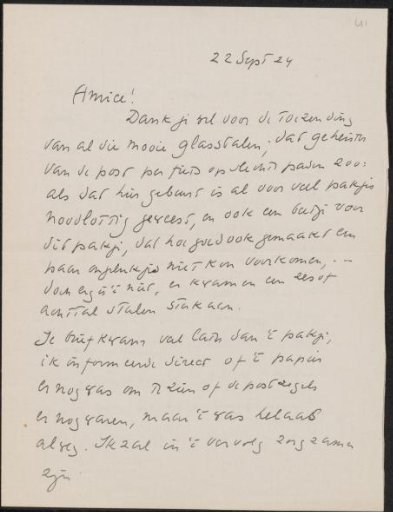 22 Sept 24
Amice!
Dank je wel voor de toezending
van al die mooie glasstalen; dat
van de post per fiets op slechte paden zoo:
als dat hier gebeurt is al voor veel pakjes
noodlottig geweest, en ook een beetje voor
dit pakje, dat hoe goed ook gemaakt een
paar ongelukjes niet kon voorkomen, ...
doch erg is 't niet, er kwamen een zes of
achttal stalen
Je brief kwam wat later dan 't pakje,
ik informeerde direct of 't papier
er nog was om te zien of de postzegels
er nog waren, maar 't was helaas
al weg. Ik zal in 't vervolg zorgzamer
zijn